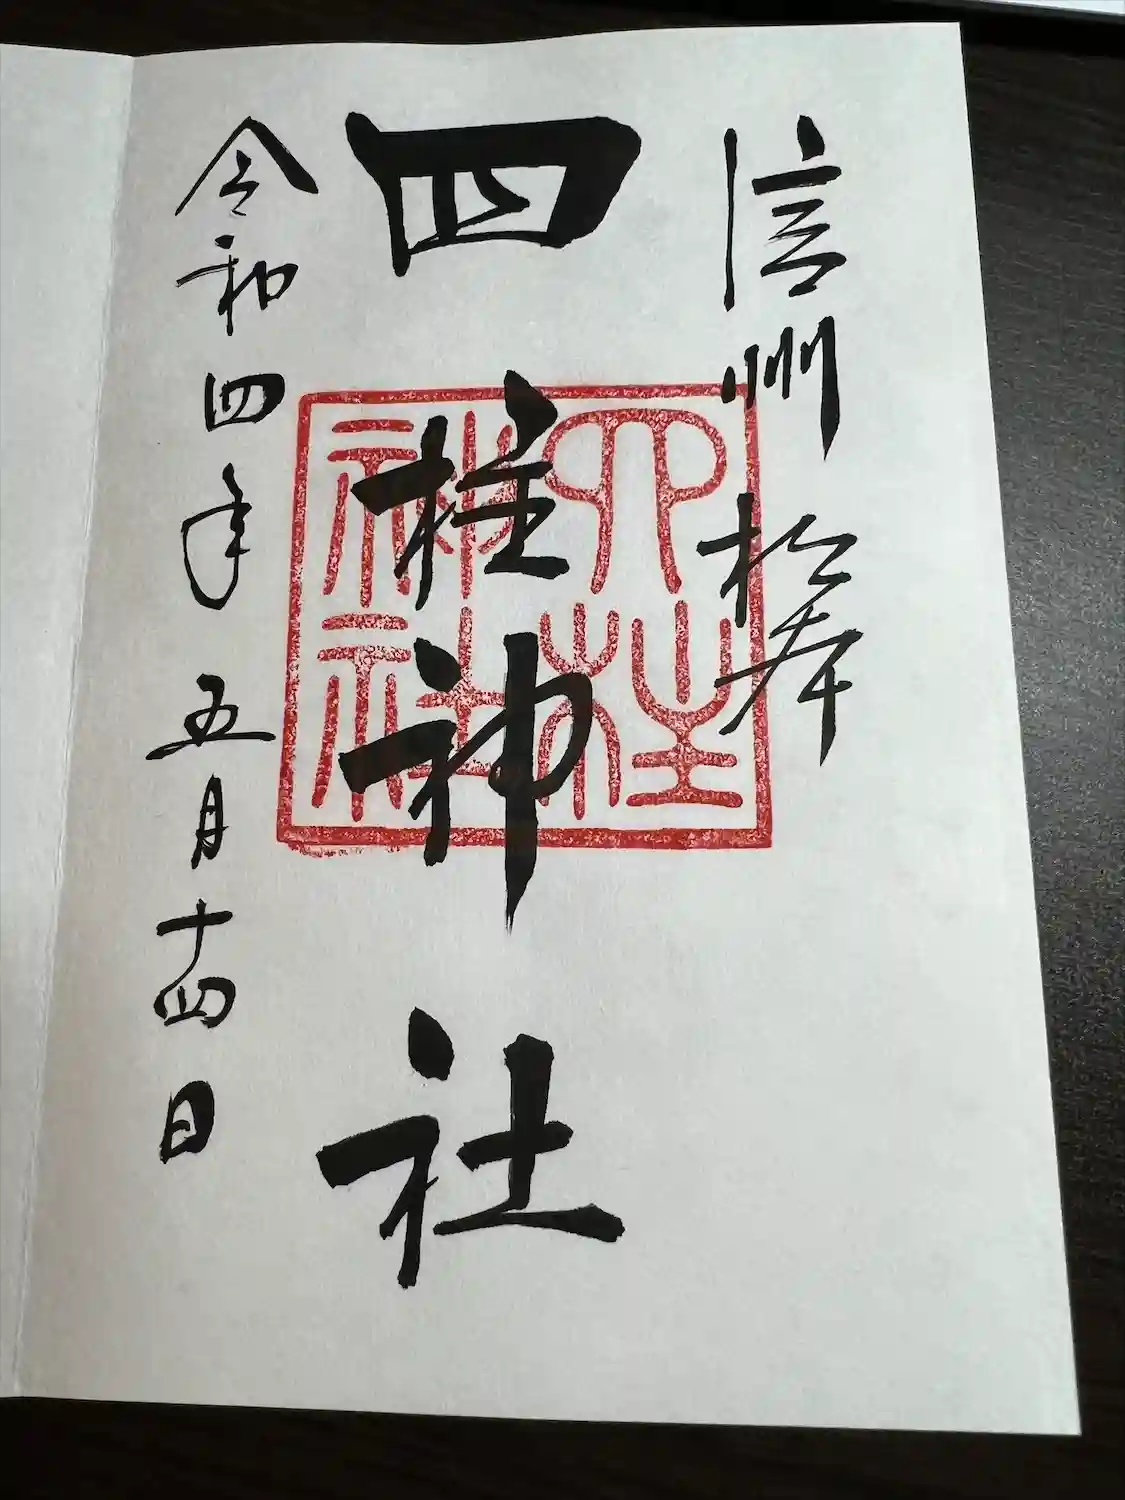 信州 松本
四柱神社
四柱
神社
令和四年五月十四日